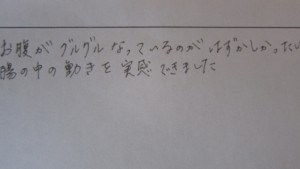 お腹がグルグルなっているのがはずかしかったし
腸の中の動きを実感できました